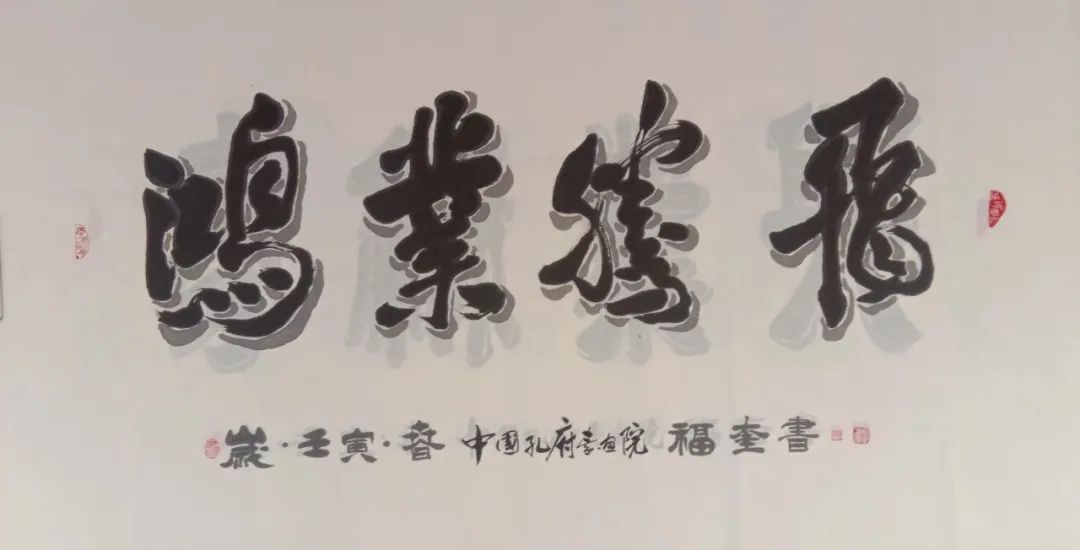 鴻業騰飛
歲·壬寅·春 中國孔府書画院 福奎書